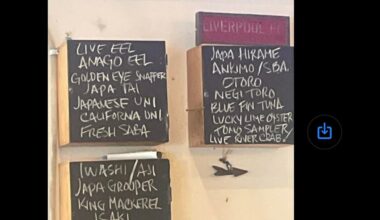 LIVE EEL
ANAGO EEL
GOLDEN EYE SNAPPER
JAPA TAI
JAPANESE UNI
CALIFORNA UNI
FRESH SABA
LIVERPOOL FC
JAPA HIRAME
ANKIMO/SBA.
OTORO
NEGI TORO
BLUE FIN TUNA
LUCKY LIME OYSTER
TOMO SAMPLER
LIVE RIVER CRAB.
IWASHI/AJI
JAPA GROUPER
KING MACKEREL
ISAKI